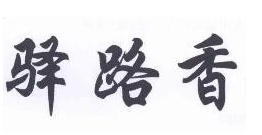 驿路香